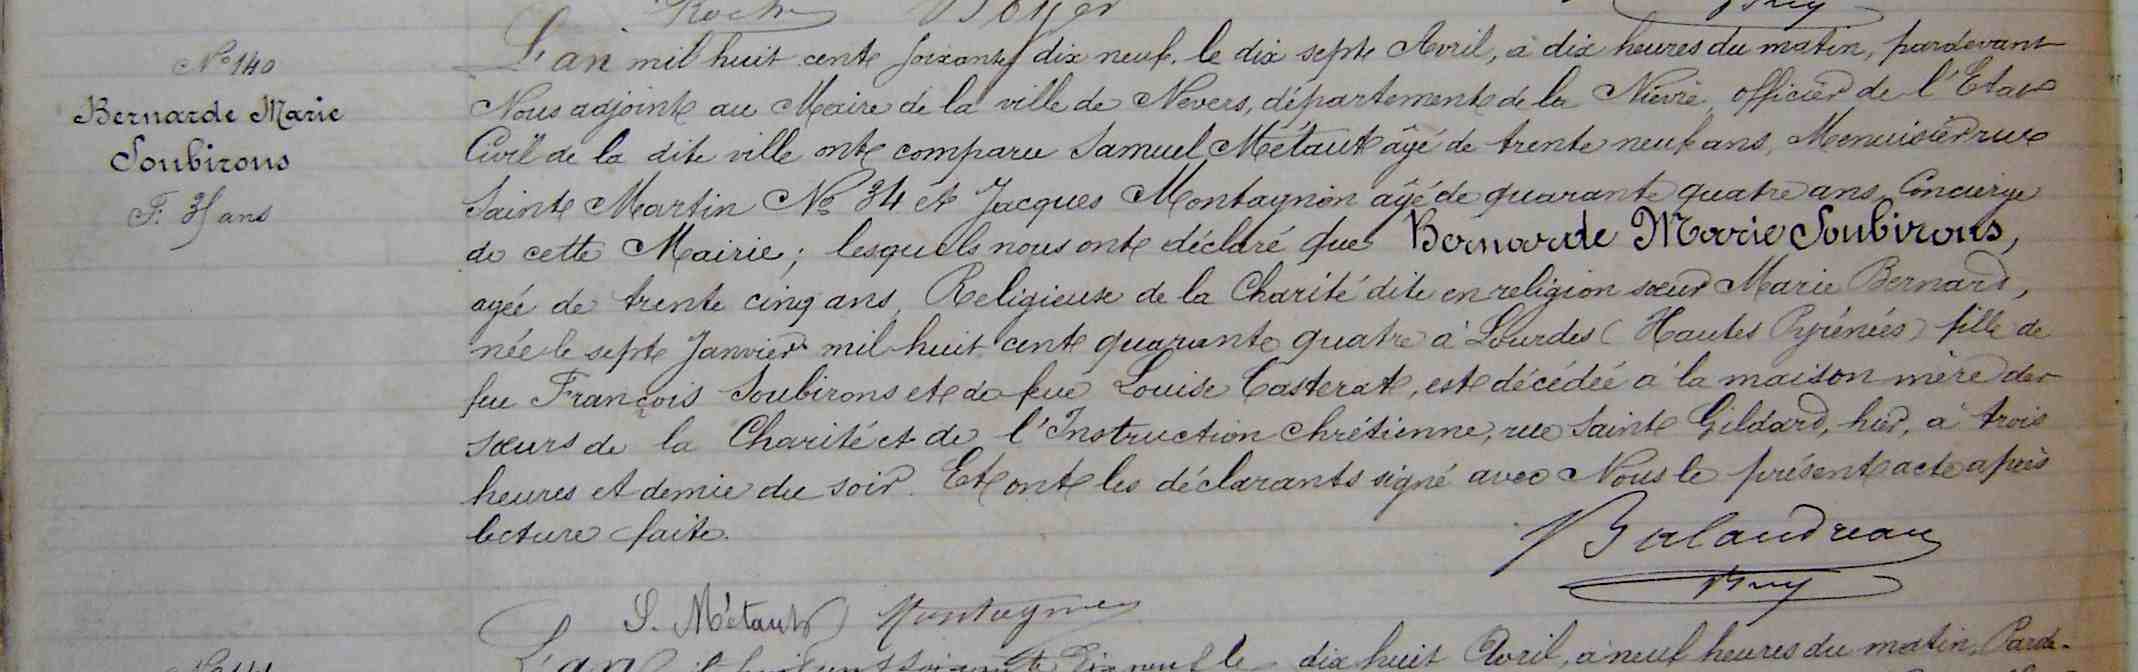 Roch Boyer
N° 140
Bernarde Marie
Soubirous
F. 35 ans
L'an mil huit cent soixante dix neuf, le dix sept Avril, à dix heures du matin, pardevant
Nous adjoint au Maire de la ville de Nevers, département de la Nièvre, officier de l'Etat
Civil de la dite ville ont comparu Samuel Métaut âgé de trente neuf ans, Menuisier rue
Saint Martin N° 34 et Jacques Montagnon âgé de quarante quatre ans, Concierge
de cette Mairie; lesquels nous ont déclaré que Bernarde Marie Soubirous,
agée de trente cinq ans, Religieuse de la Charité dite en religion sœur Marie Bernard,
née le sept Janvier mil huit cent quarante quatre à Lourdes (Hautes Pyrénées) fille de
feu François Soubirous et de feue Louise Casterat, est décédée à la maison mère des
sœurs de la Charité et de l'Instruction chrétienne, rue Saint Gildard, hier, à trois
heures et demie du soir. Et ont les déclarants signé avec Nous le présent acte après
lecture faite.
Balandreau
S. Métaut Montagnon
L'an mil huit cent soixante dix neuf le dix huit Avril, à neuf heures du matin, Parde-
N° 141